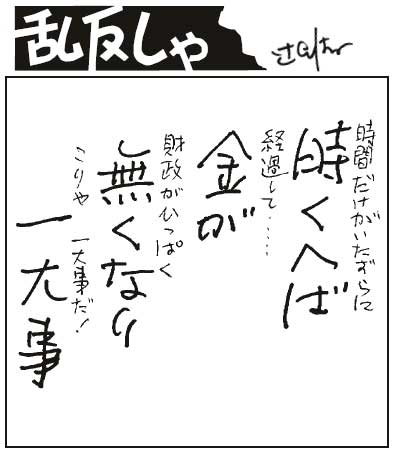 乱反しゃ
時間だけがいたずらに
時くへば
経過して……
金が
財政がひっぱく
無くなり
こりゃ 一大事だ!
一大事